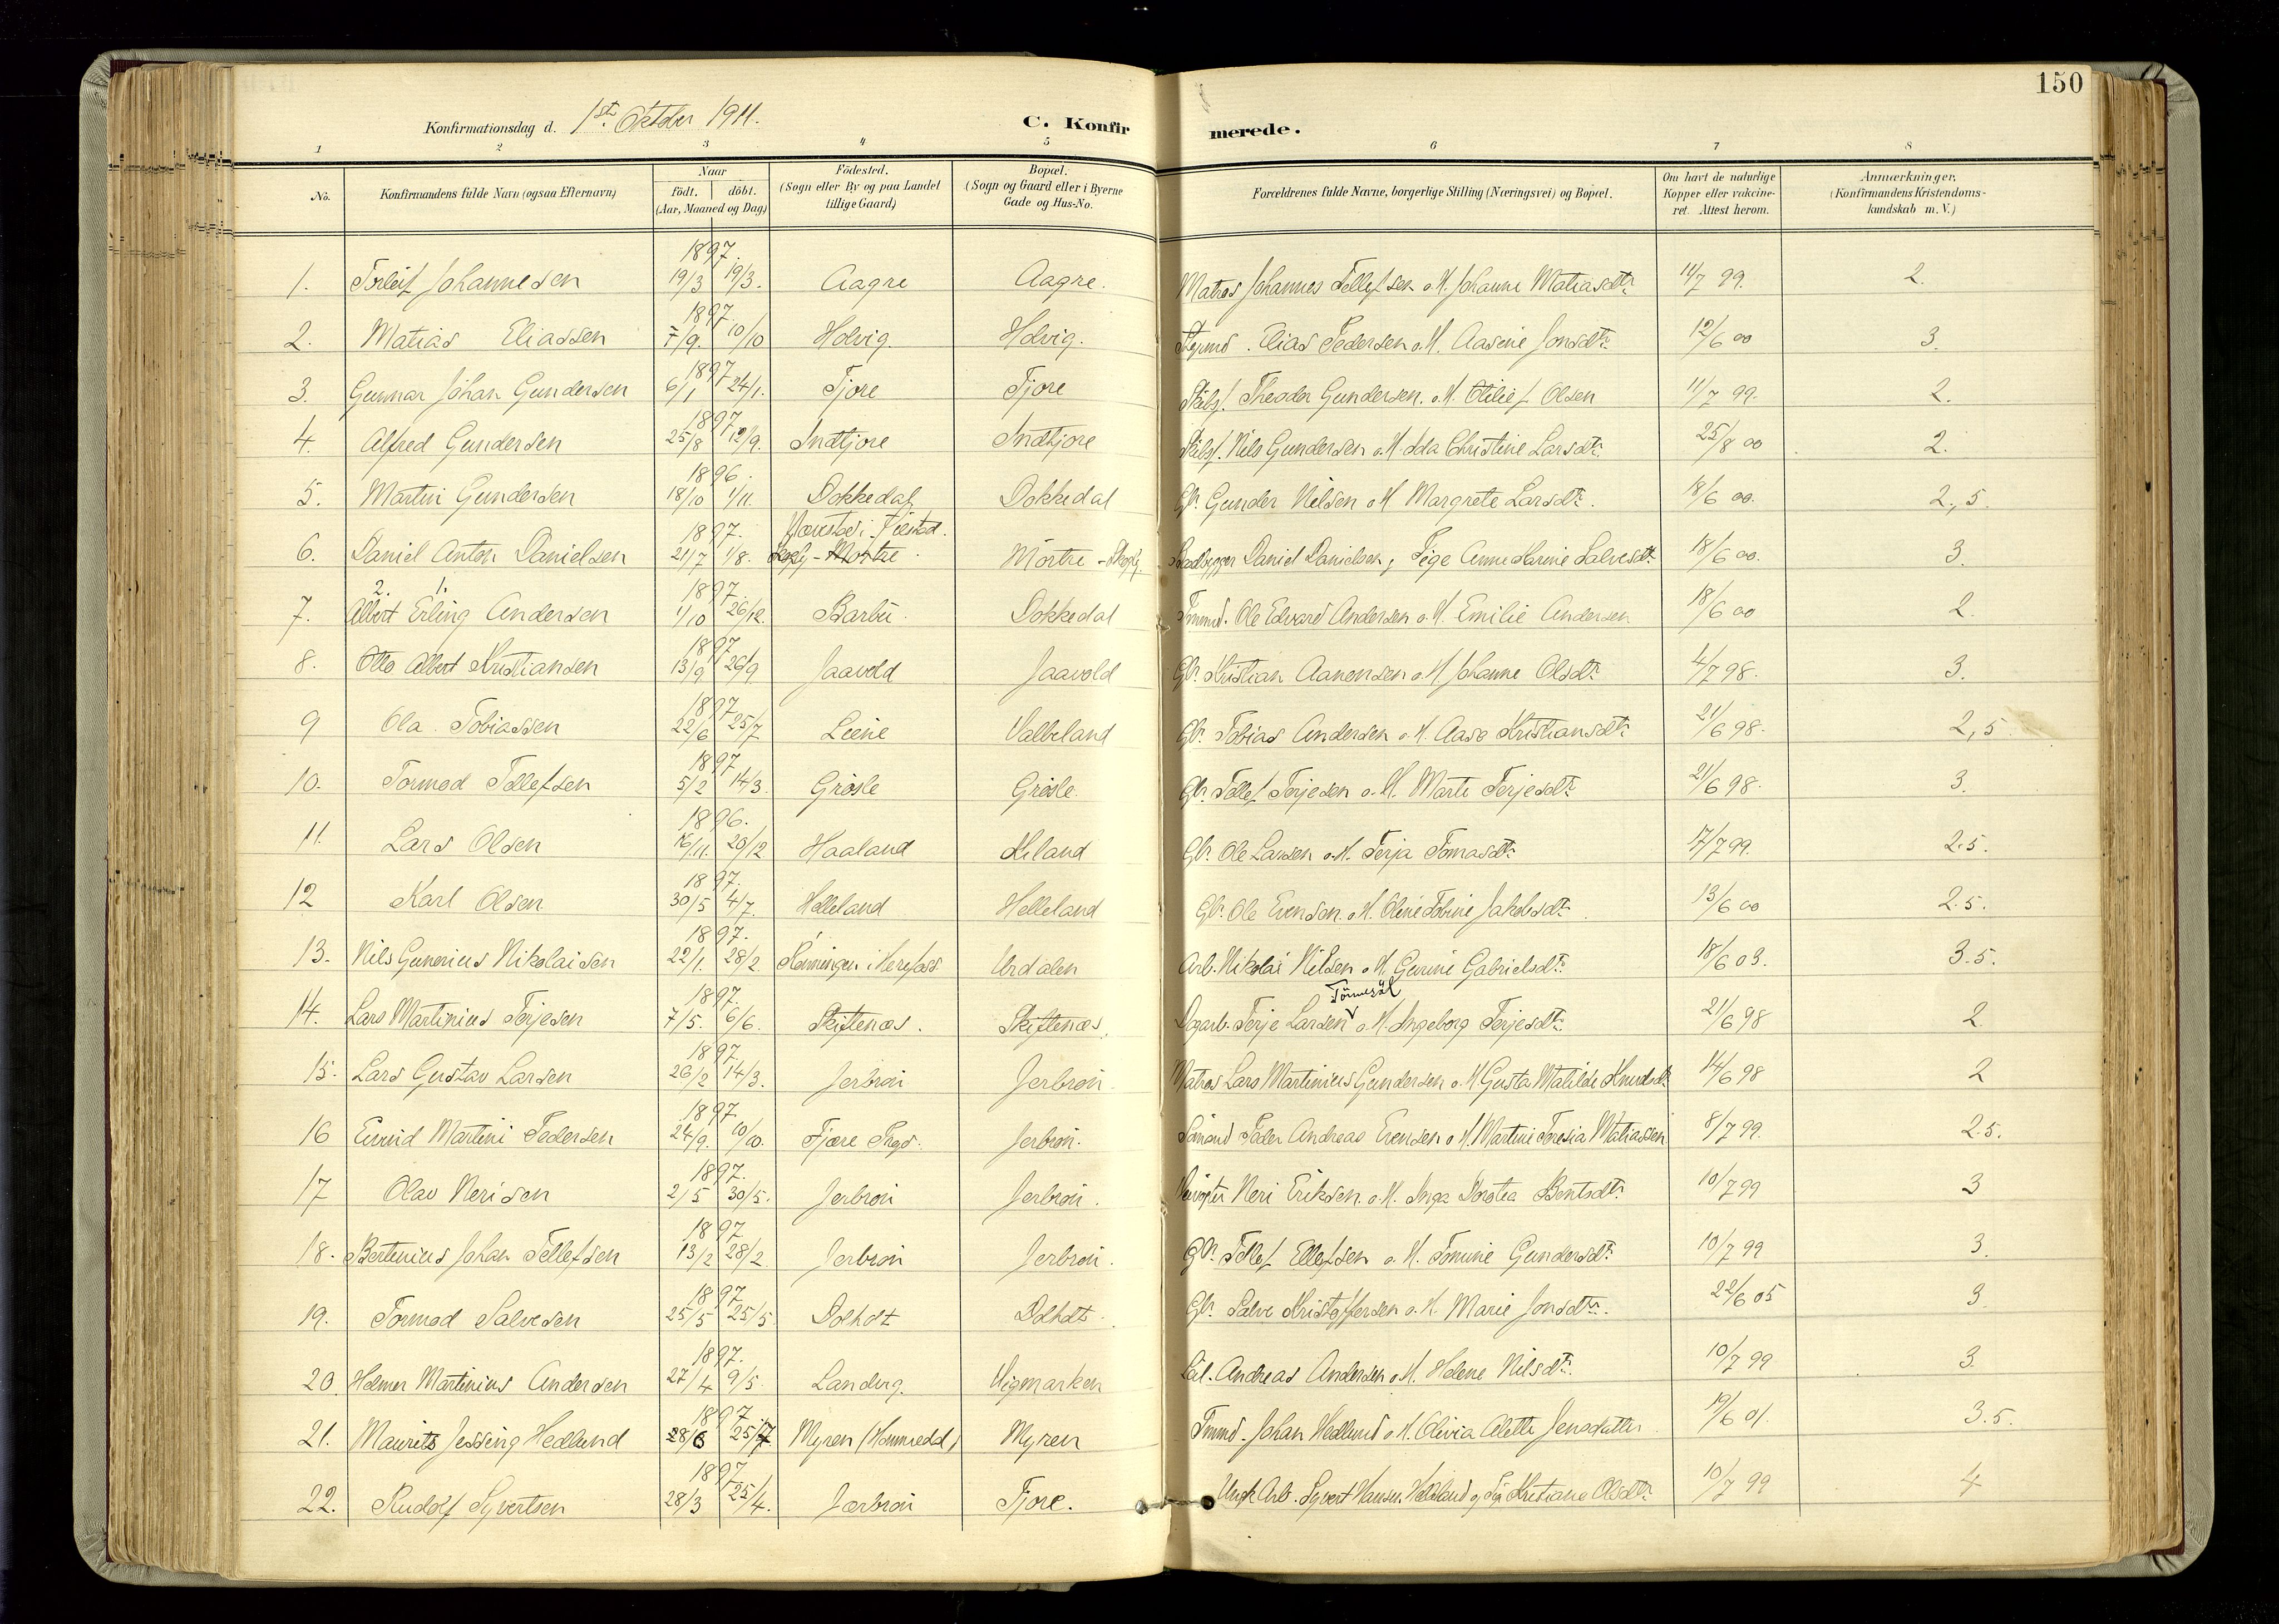 150
Konfirmationsdag d. 1ste Oktober 1911. C. Konfirmerede.
1 2 3 4 5 6 7 8
No. Konfirmandens fulde Navn (ogsaa Efternavn) Naar födt. döbt. (Aar, Maaned og Dag) Födested. (Sogn eller By og paa Landet tillige Gaard) Bopæl. (Sogn og Gaard eller i Byerne Gade og Hus-No. Forældrenes fulde Navne, borgerlige Stilling (Næringsvei) og Bopæl. Om havt de naturlige Kopper eller vakcineret. Attest herom. Anmærkninger, (Konfirmandens Kristendomskundskab m. V.)
1897.
1. Torleif Johannesen 19/3 19/3. Aagre Aagre. Matros Johannes Tellefsen o. H. Johanne Matiasdtr. 11/7 99. 2.
1897.
2. Matias Eliassen 7/9. 10/10 Holvig. Holvig. Elias Pedersen o. H. Aasine Jonsdtr. 12/6 00 3.
1897
3. Gunnar Johan Gundersen 6/1 24/1. Fjore Fjore Skibsf. Theodor Gundersen. o. H. Otilie f. Olsen 11/7 99. 2.
1897
4. Alfred Gundersen 25/8 12/9. Indfjore Indfjore Skibsf. Nils Gundersen o. H. Ida Christine Larsdtr. 25/8 00 2.
1896.
5. Martin Gundersen 18/10 1/11. Dokkedal Dokkedal Gbr. Gunder Nilsen o H Margrete Larsdtr. 18/6 00. 2,5
1897.
6. Daniel Anton Danielsen 21/7 1/8. Mortre Mortre Daniel Danielsen, Pige Anne Karine Salvesdtr. 18/6 00. 3.
2. 1. 1897.
7. Albert Erling Andersen 1/10 26/12. Barbu. Dokkedal Tmmd. Ole Edvard Andersen o. H. Emilie Andersen 18/6 00 2.
1897
8. Otto Albert Kristiansen 13/9 26/9 Jaavold Jaavold Gbr. Kristian Aanonsen o. H. Johanne Olsdtr. 4/7 98. 3.
1897
9 Ola Tobiassen 22/6 25/7 Leine Valbeland Gbr. Tobias Andersen o. H. Aase Kristiansdtr. 21/6 98. 2,5
1897
10. Tormod Tellefsen 5/2 14/3. Grösle Grösle. Gbr. Tellef Terjesen o. H. Marte Terjesdtr. 21/6 98. 3.
1896.
11. Lars Olsen 16/11. 20/12 Haaland Kiland Gbr. Ole Larsen o. H. Terja Tomasdtr. 17/7 99. 2.5.
1897.
12 Karl Olsen 30/5 4/7. Helleland Helleland Gbr. Ole Evensen o. H. Oline Tobine Jakobsdtr. 13/6 00 2.5.
1897.
13. Nils Gunerius Nikolaisen 22/1. 28/2. i Herefoss. Urdalen Arb. Nikolai Nilsen o. H. Gurine Gabrielsdtr. 18/6 03. 3.5.
1897. Tönnesöl
14. Lars Martinius Terjesen 7/5. 6/6. Skiftenæs. Skiftenæs. Dagarb. Terje Larsen o. H. Ingeborg Terjesdtr. 21/6 98 2
1897.
15. Lars Gustav Larsen 26/2 14/3. Jerbron Jerbron. Matros Lars Martinius Gundersen o. H Gusta Matilde Knudsdtr. 14/6 98 2
1897
16 Eivind Martin Pedersen 24/9. 10/10. Fjære Jerbron. Sömand Peder Andreas Evensen o. H. Martine Teresia Matiassen 8/7 99. 2.5.
1897.
17 Olav Nerisen 2/5 30/5. Jerbron Jerbron. Neri Eriksen. o. H. Inga Dorotea Bentsdtr. 10/7 99 3
1897
18. Bertinius Johan Tellefsen 13/2 28/2. Jerbron Jerbron. Gbr. Tellef Ellefsen o. H. Tomine Gundersdtr. 10/7 99 3.
1897.
19. Tormod Salvesen 25/5 25/5 Dolholt Dolholt. Gbr. Salve Kristoffersen o. H. Marie Jonsdtr. 22/6 05 3
1897.
20. Helmer Martinius Andersen 27/4 9/5. Landvig. Vigmarken Andreas Andersen o. H. Helene Nilsdtr. 10/7 99 3.
1897
21. Maurits Jessing Hedlund 28/6 25/7 Myren (Hommedal) Myren Tmmd. Johan Hedlund o. H. Olivia Alette Jensdatter 19/6 01. 3.5.
1897.
22. Rudolf Syvertsen 28/3 25/4. Jærbron Fjore. Ungk. Arb. Syvert Hansen Helleland og Pig. Kristiane Olsdtr. 10/7 99 4